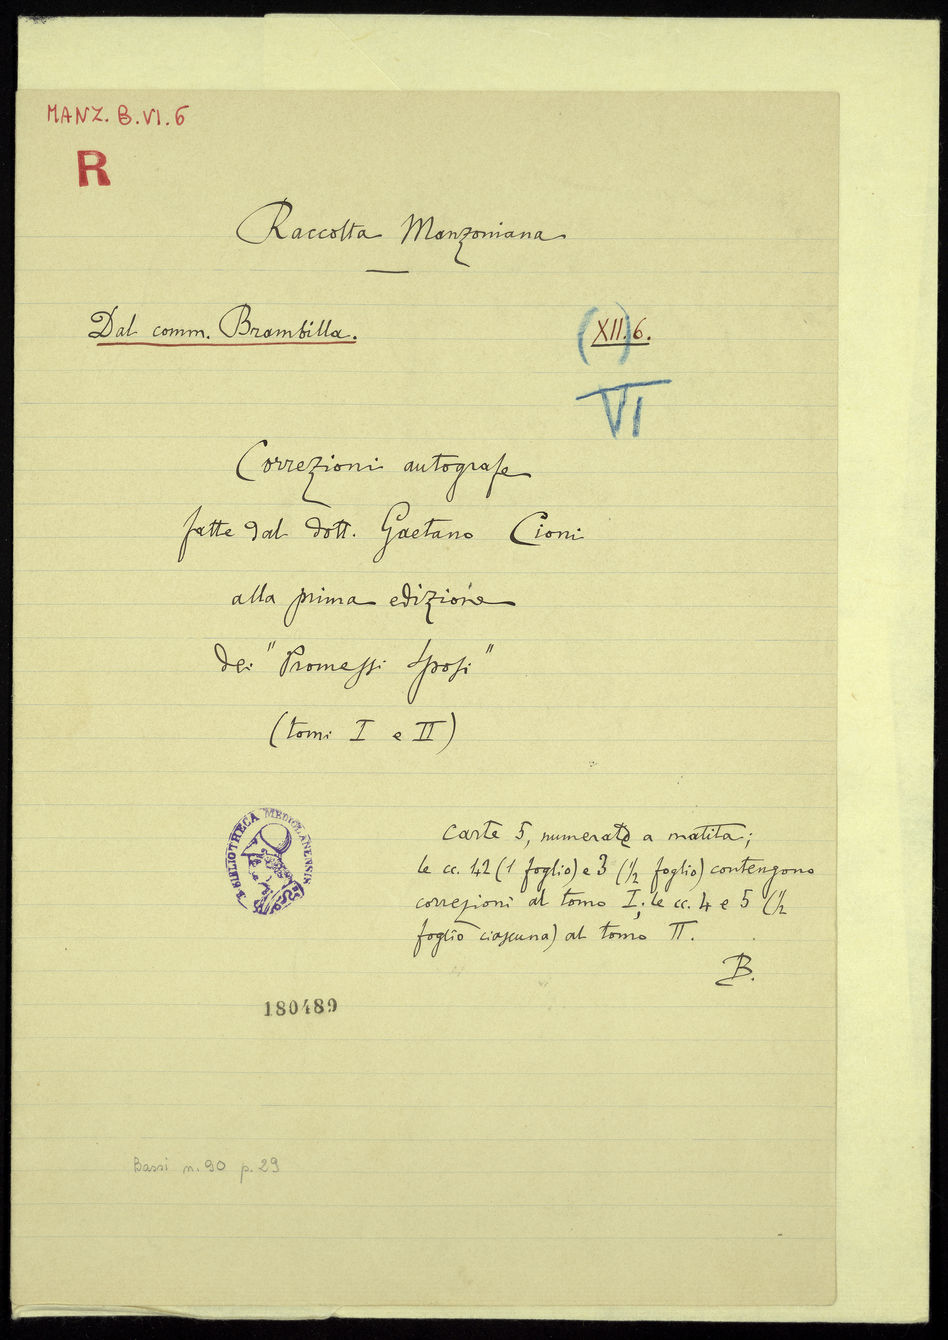 MANZ. B.VI.6
R
Raccolta Manzoniana
Dal comm. Brambilla.
(XII).6.
VI
Correzioni autografe
fatte dal dott. Gaetano Cioni
alla prima edizione
dei "Promessi Sposi"
(tomi I e II)
BIBLIOTHECA MEDIOLANENSIS
Carte 5, numerate a matita;
le cc. 1-2 (1 foglio) e 3 (1/2 foglio) contengono
correzioni al tomo I; le cc. 4 e 5 (1/2
foglio ciascuna) al tomo II.
B.
180489
Bassi n. 90 p. 29